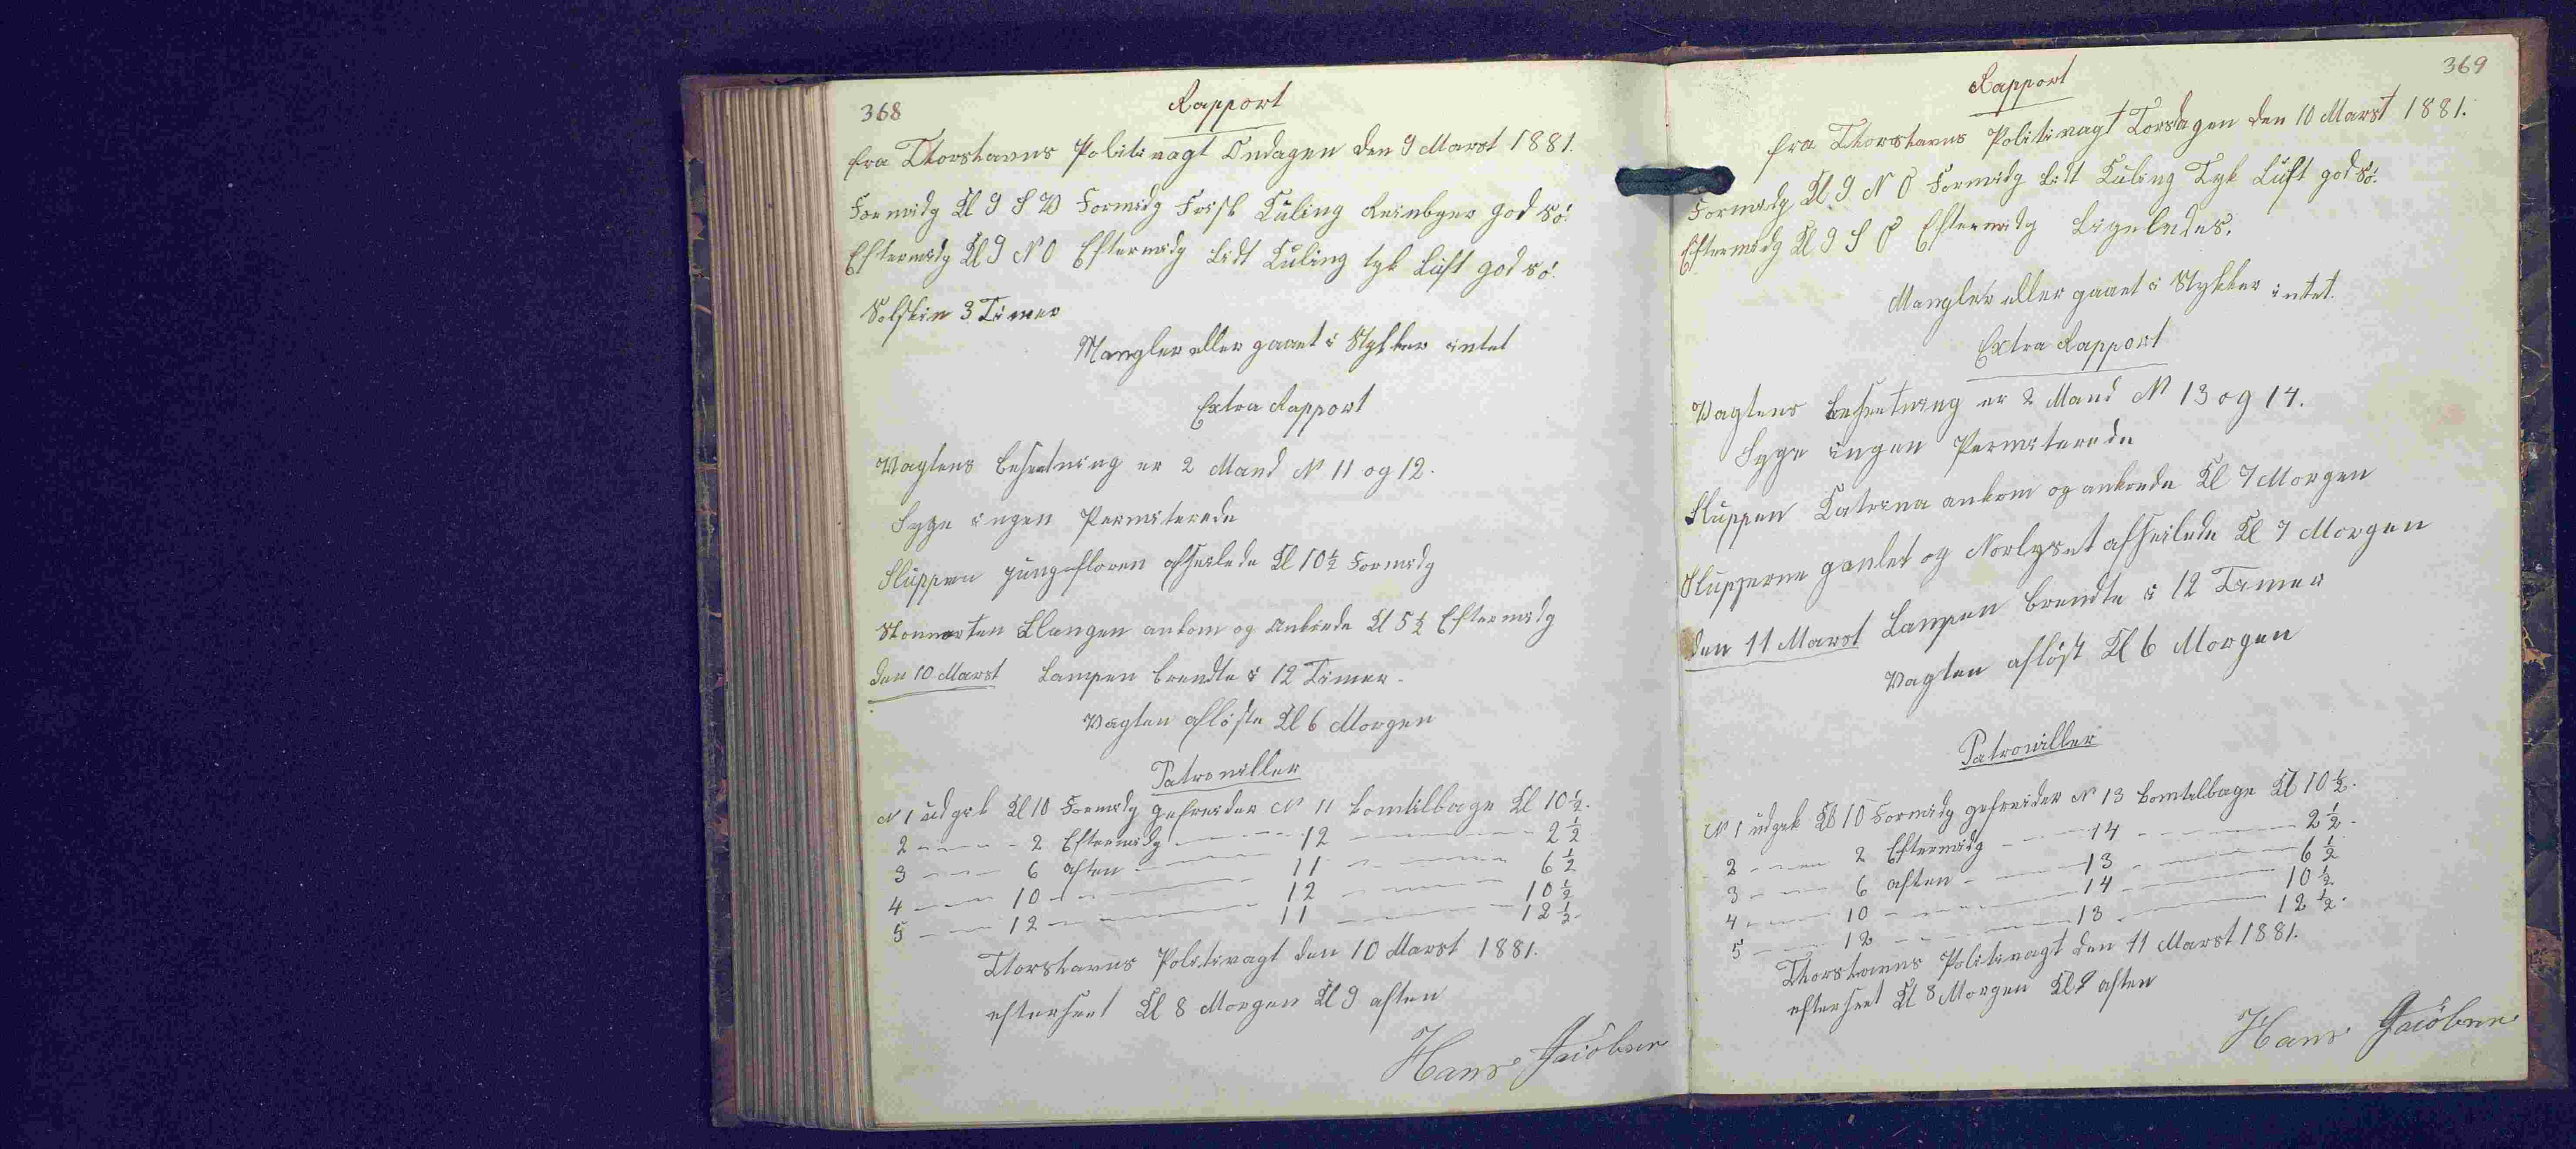 368
Rapport
fra Thorshavns Politivagt Onsdagen den 9 Marst 1881.
Formidg Kl 9 S V Formidg Frisk Kuling Reinbyger god sö.
Eftermidg Kl 9 N O Eftermidg Lidt Kuling tyk Luft god sö.
Solskin 3 Timer
Mangler eller gaaet i Stykker intet
Extra Rapport
Vagtens besætning er 2 Mand N 11 og 12.
Syge ingen Permiterede
Sluppen afseilede Kl 10½ Formidg
ankom og Ankrede Kl 5½ Eftermidg
den 10 Marst Lampen brendte i 12 Timer
Vagten aflöste Kl 6 Morgen
Patrouiller
N 1 udgik Kl 10 Formidg gefreider N 11 komtilbage Kl 10½.
2 - - - - 2 Eftermidg - - - - 12 - - - - 2½
3 - - - 6 aften - - - - 11 - - - - 6½
4 - - - 10 - - - - 12 - - - - 10½
5 - - - 12 - - - - 11 - - - - 12½.
Thorshavns Politivagt den 10 Marst 1881.
efterseet Kl 8 Morgen Kl 9 aften
Hans
369
Rapport
fra Thorshavns Politivagt Torsdagen den 10 Marst 1881.
Formidg Kl 9 N O Formidg Lidt Kuling Tyk Luft god sö.
Eftermidg Kl 9 S O Eftermidg Ligeledes.
Mangler eller gaaet i Stykker intet.
Extra Rapport
Vagtens besætning er 2 Mand N 13 og 14.
Syge ingen Permiterede
Sluppen Katrina ankom og ankrede Kl 7 Morgen
Slupperne og Norlyset afseilede Kl 7 Morgen
den 11 Marst Lampen brendte i 12 Timer
Vagten aflöst Kl 6 Morgen
Patrouiller
N 1 udgik Kl 10 Formidg gefreider N 13 komtilbage Kl 10½.
2 - - - 2 Eftermidg - - - 14 - - - - 2½.
3 - - - 6 aften - - - 13 - - - - 6½
4 - - - 10 - - - - 14 - - - - 10½
5 - - - 12 - - - - 13 - - - - 12½.
Thorshavns Politivagt den 11 Marst 1881.
efterseet Kl 8 Morgen Kl 9 aften
Hans